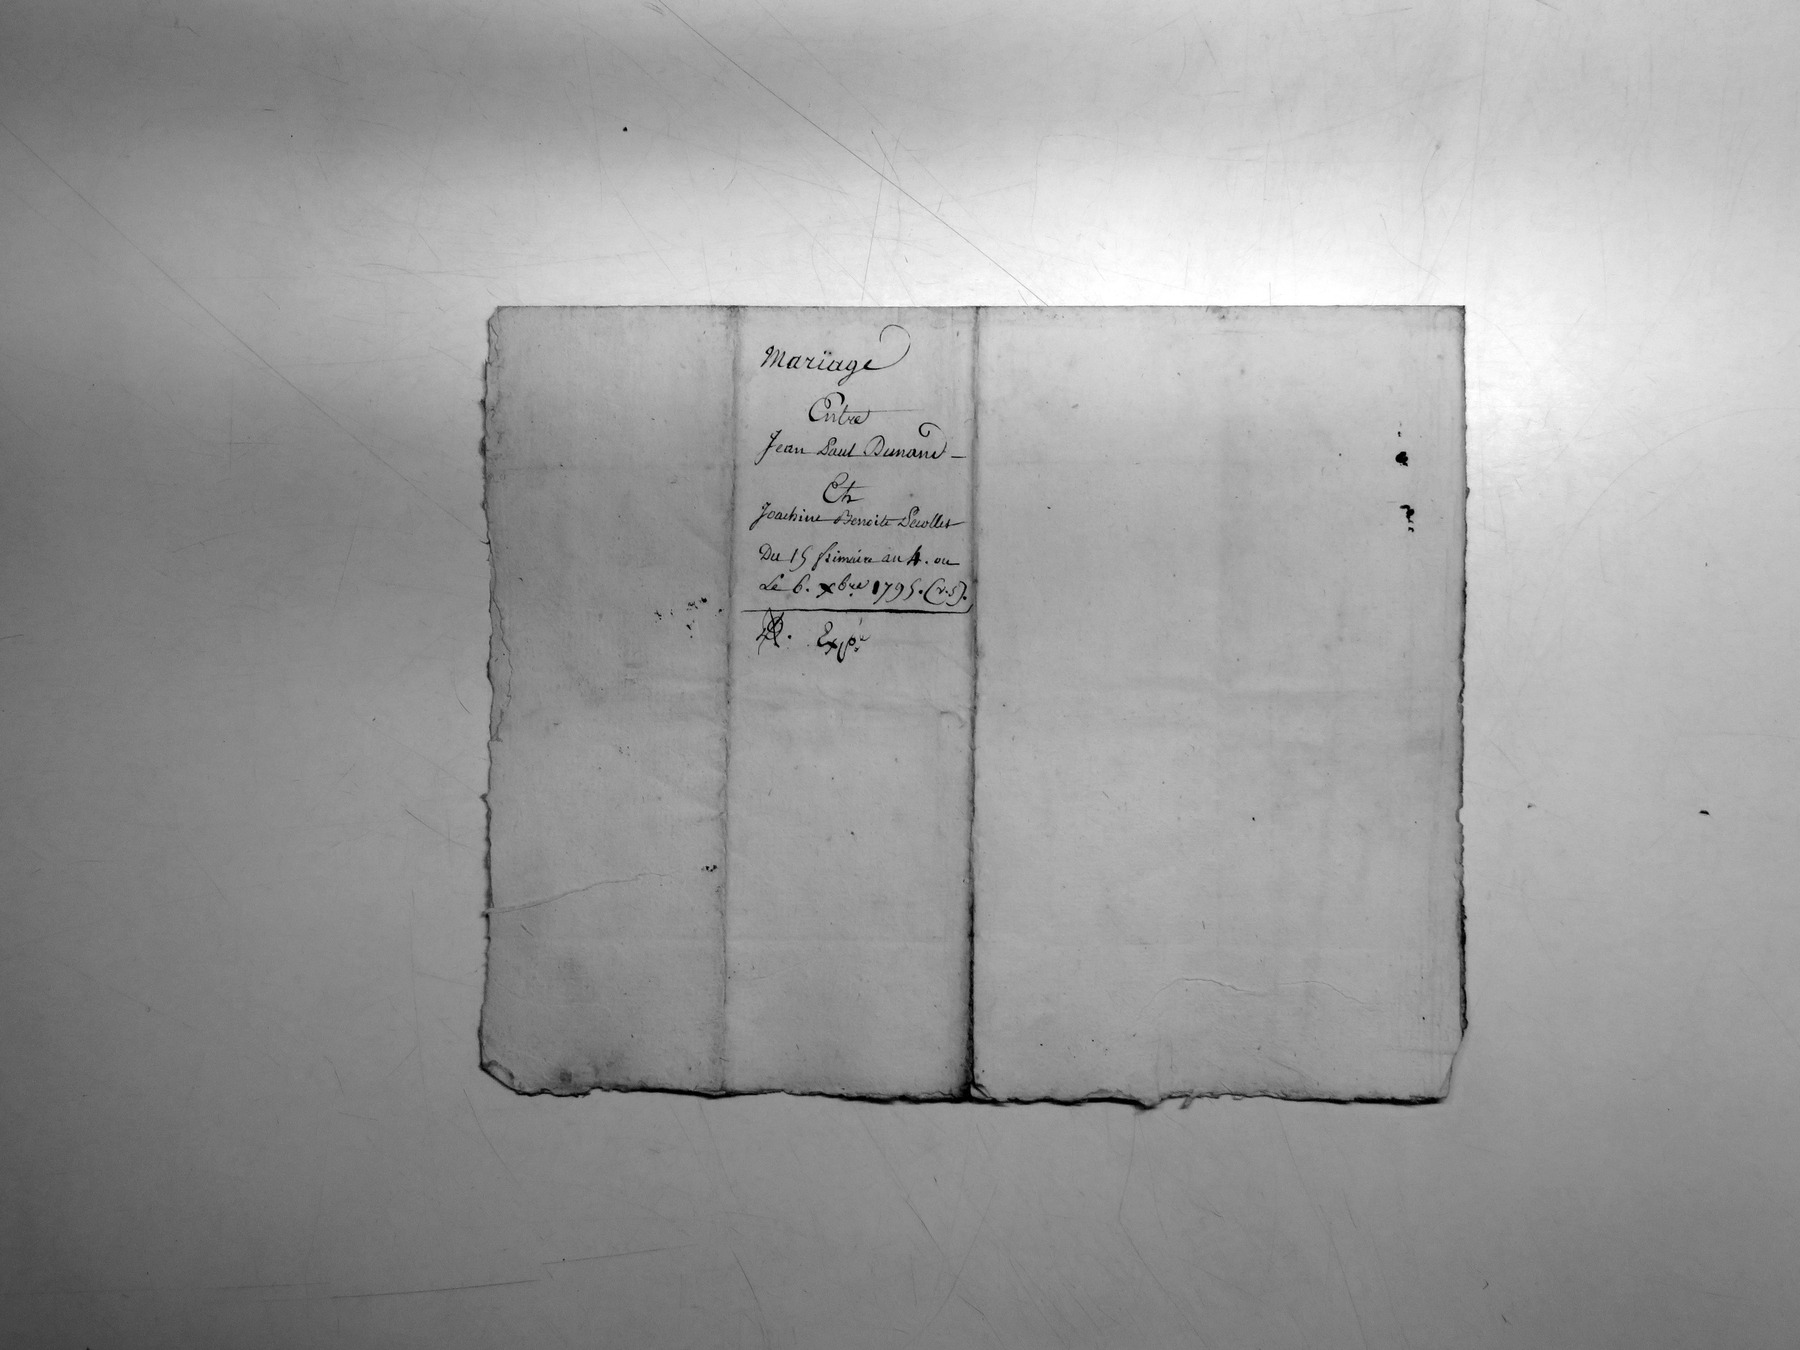 Mariage
Entre
Jean Paul Dunand
Et
Joachine Benoite Decollet
Du 15 frimaire an 4. ou
Le 6. xbre 1795. (v.s).
Expé